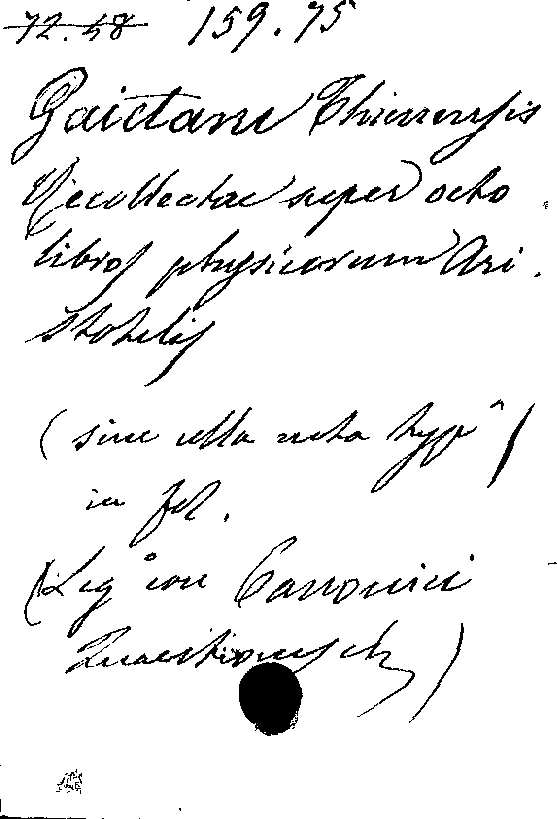 72.48 159.75
Gaietani Thienensis
Recollectae super octo
libros physicorum Ari
stotelis
(sine ulla nota typ^)
in fol.
(Leg° con Canonici
Quaestiones etc)